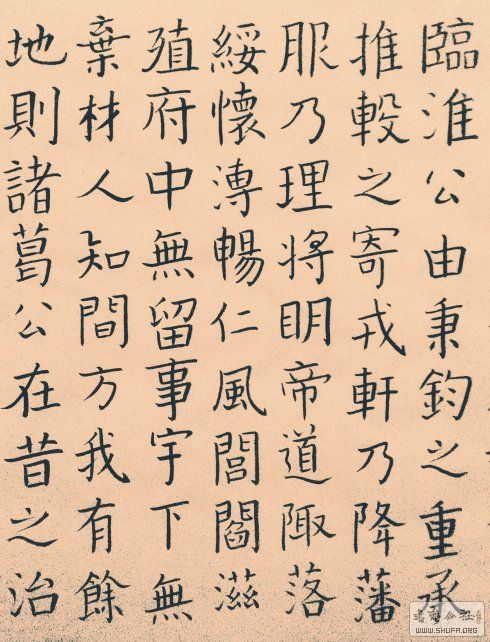 臨淮公由秉鈞之重承
推轂之寄戎軒乃降藩
服乃理將明帝道陬落
綏懷溥暢仁風閭閻滋
殖府中無留事宇下無
棄材人知間方我有餘
地則諸葛公在昔之治
WWW.SHUFA.ORG